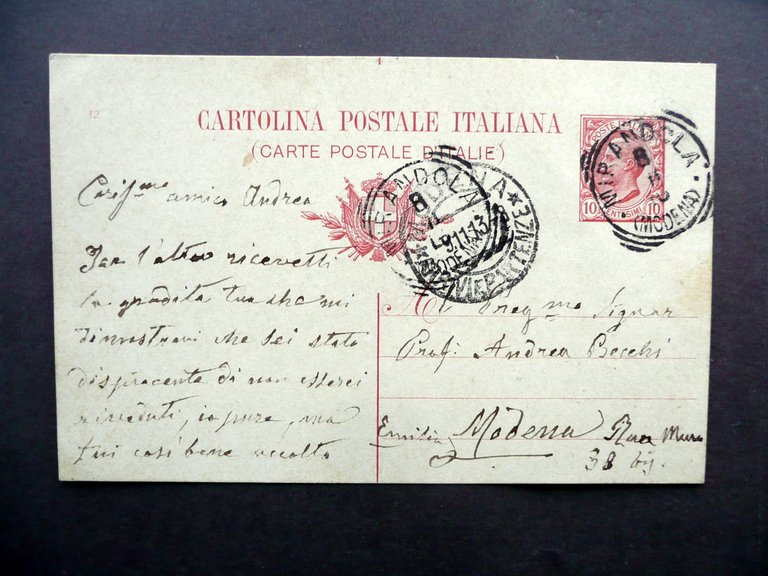 12
CARTOLINA POSTALE ITALIANA
(CARTE POSTALE D'ITALIE)
POSTE ITALIANE
10 CENTESIMI 10
MIRANDOLA
(MODENA)
MIRANDOLA
8
(MODENA)
MODENA
9.11.13
Cariss.mo amico Andrea
Jer l'altro ricevetti
la gradita tua che mi
dimostravi che sei stato
dispiacente di non esserci
riveduti, io pure, ma
fui così bene accolto
Al Preg.mo Signor
Prof. Andrea Becchi
Emilia Modena Rua Muro
38 bis.